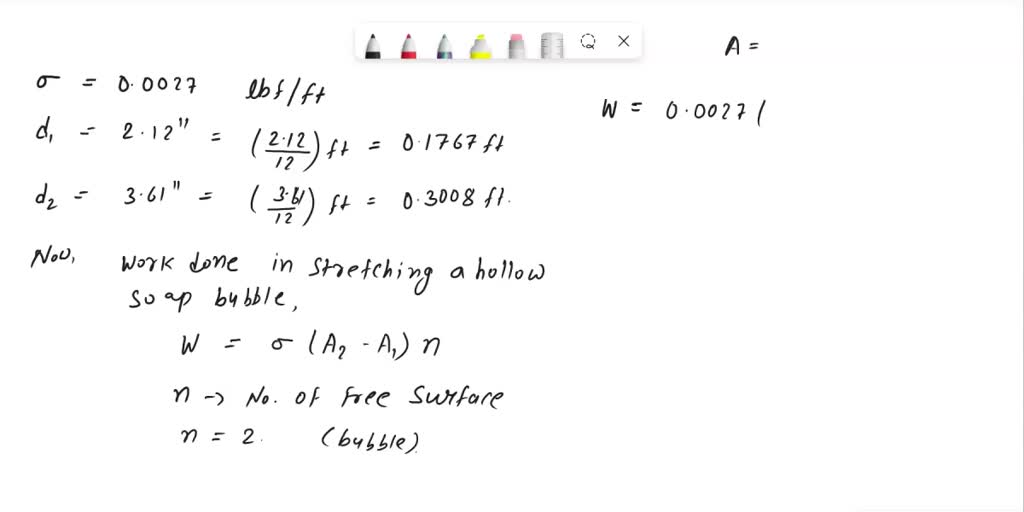 σ = 0.0027 lbf/ft
d₁ = 2.12" = (2.12/12) ft = 0.1767 ft
d₂ = 3.61" = (3.61/12) ft = 0.3008 ft.
Now, work done in stretching a hollow
soap bubble,
W = σ (A₂ - A₁) n
n → No. of free surface
n = 2. (bubble)
A =
W = 0.0027 (